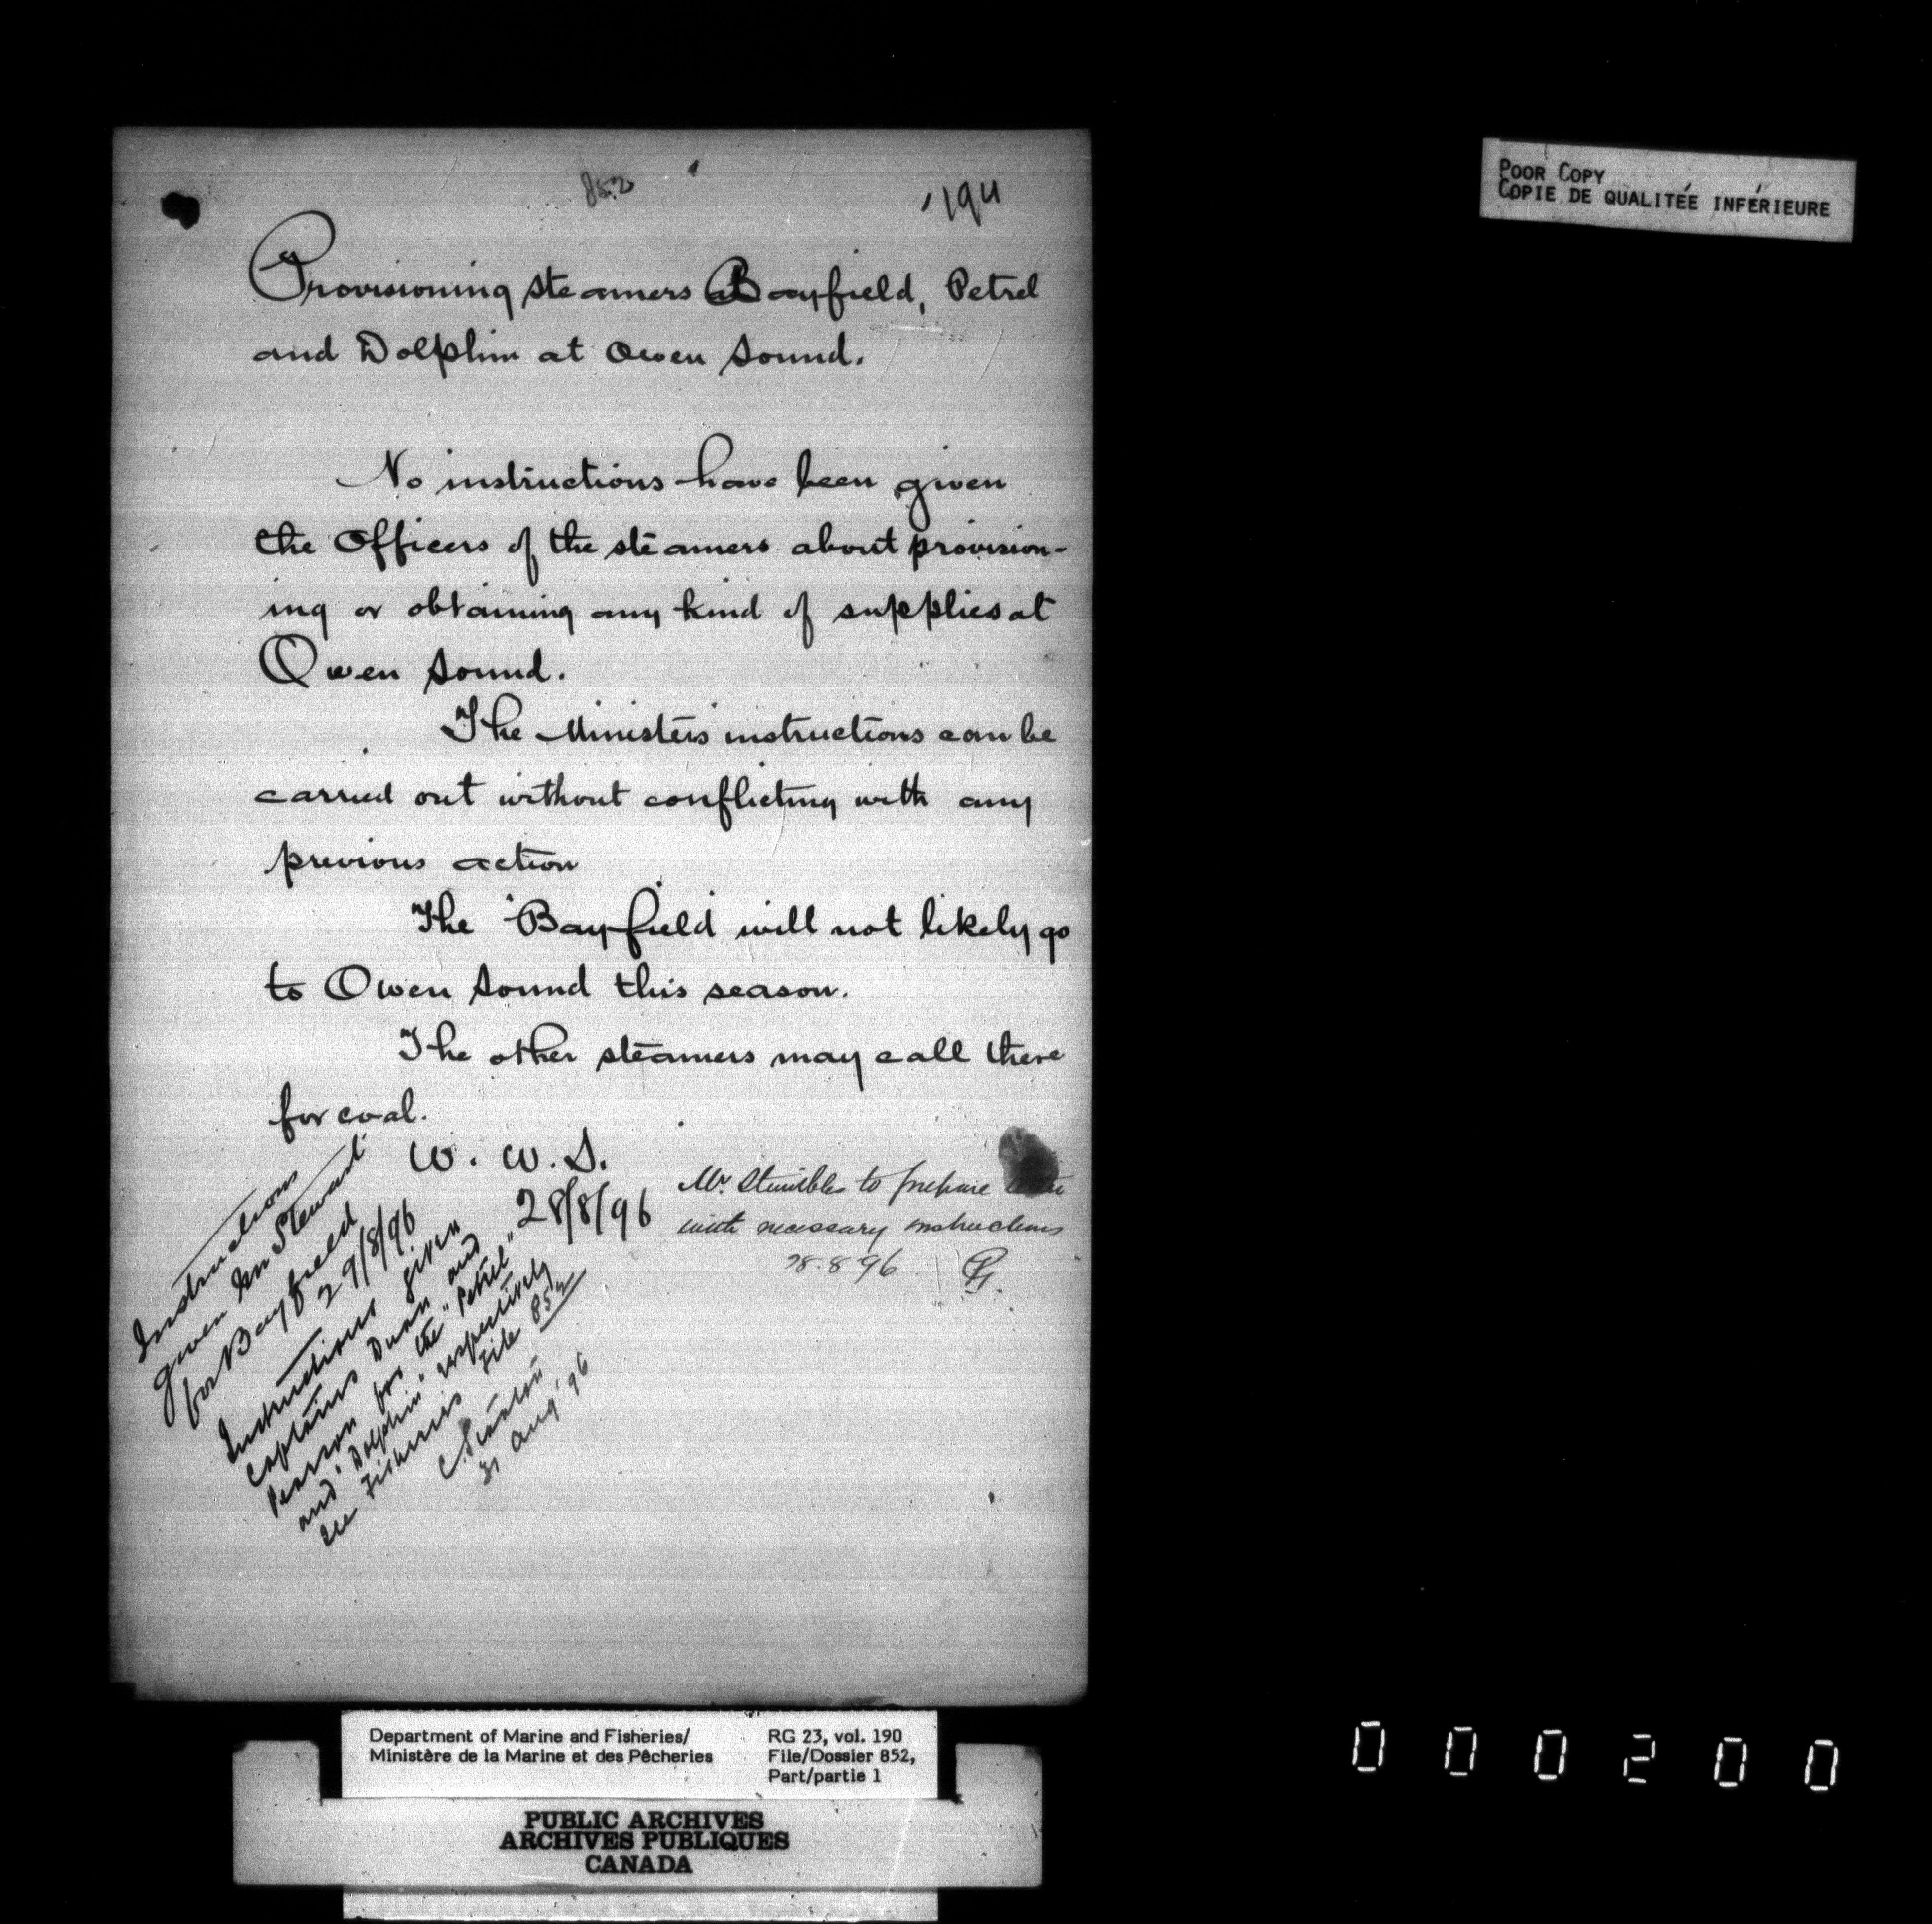 852
194
Provisioning steamers Bayfield, Petrel
and Dolphin at Owen Sound.
No instructions have been given
the Officers of the steamers about provision-
ing or obtaining any kind of supplies at
Owen Sound.
The Ministers instructions can be
carried out without conflicting with any
previous action
The "Bayfield" will not likely go
to Owen Sound this season.
The other steamers may call there
for coal.
W. W. S.
28/8/96
Mr. Stumbles to prepare
with necessary instructions
28.8.96
Instructions
given Mr Stewart
for Bayfield
29/8/96
Instructions given
Captains Dunn and
Pearson for the "Petrel"
and "Dolphin" respectively
see Fisheries file 852
31 Aug '96
POOR COPY
COPIE DE QUALITÉE INFÉRIEURE
Department of Marine and Fisheries/
Ministère de la Marine et des Pêcheries
RG 23, vol. 190
File/Dossier 852,
Part/partie 1
PUBLIC ARCHIVES
ARCHIVES PUBLIQUES
CANADA
000200